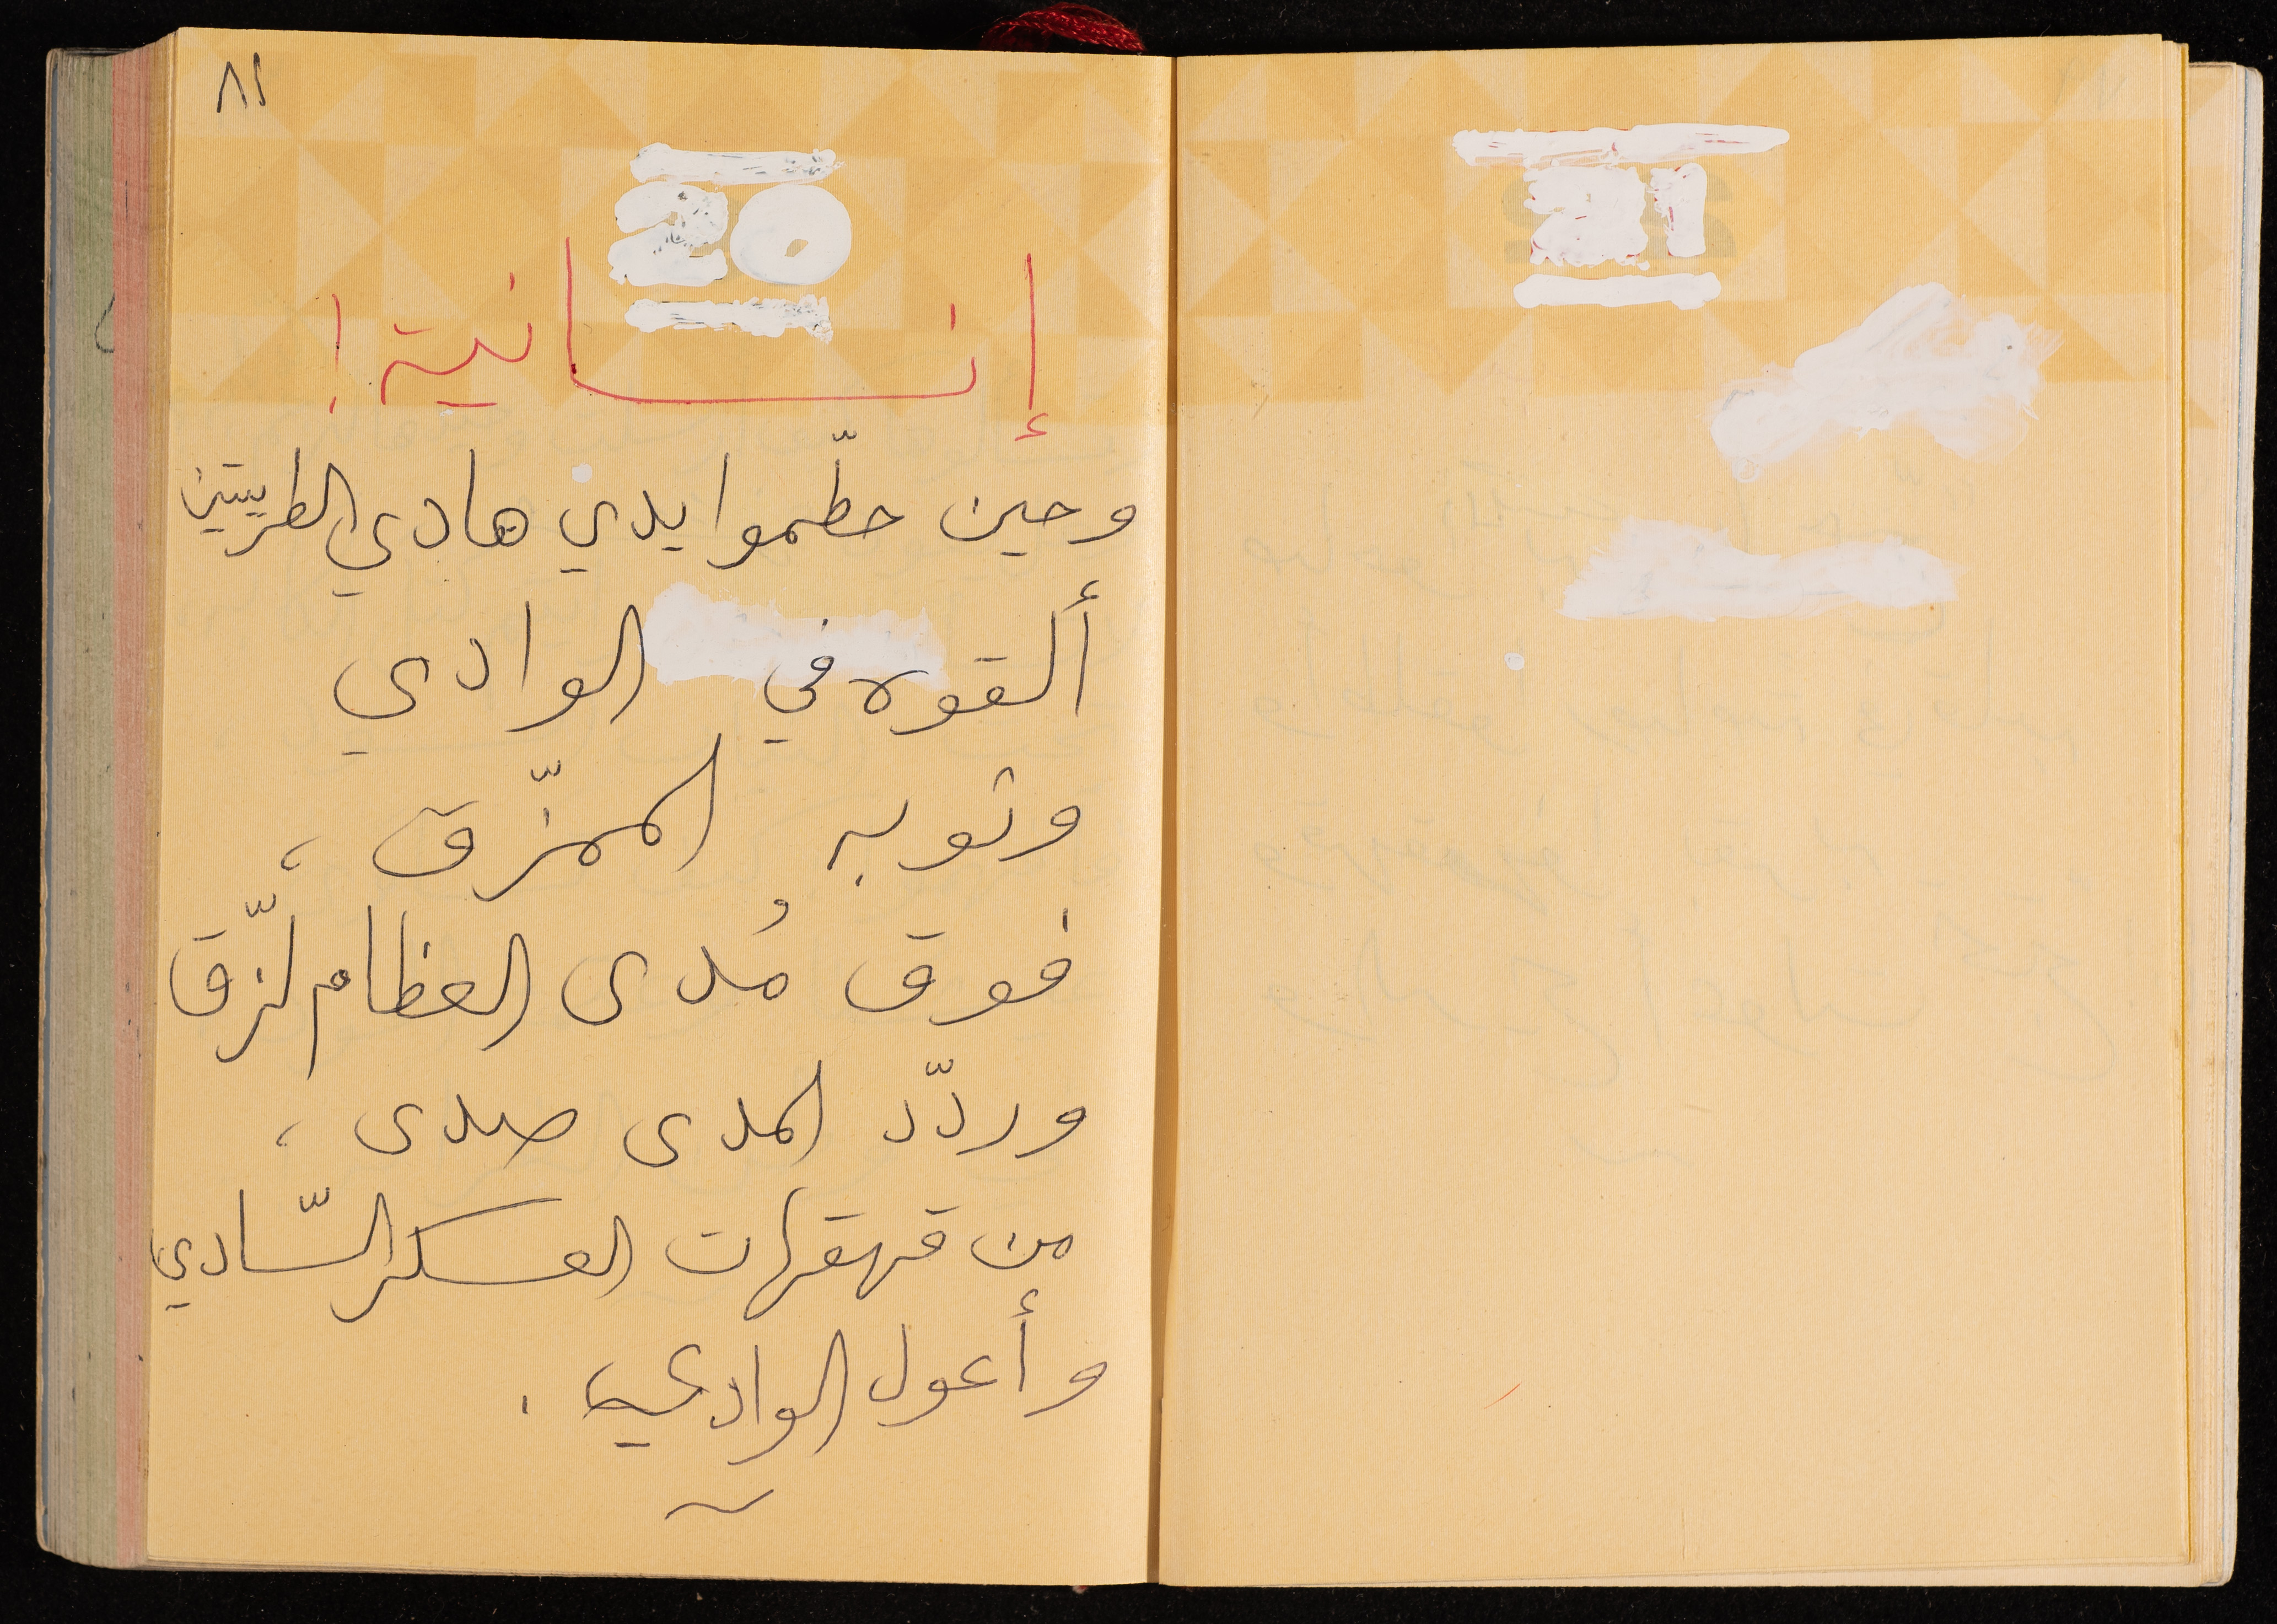 ٨١
إنسانية!
وحين حطّموا يدي هادي الطريتين
ألقوه في الوادي
وثوبه الممزّق،
فوق مُدى العظام لزّق
وردّد المدى صدى،
من قهقهات العسكر السّادي،
وأعول الوادي.